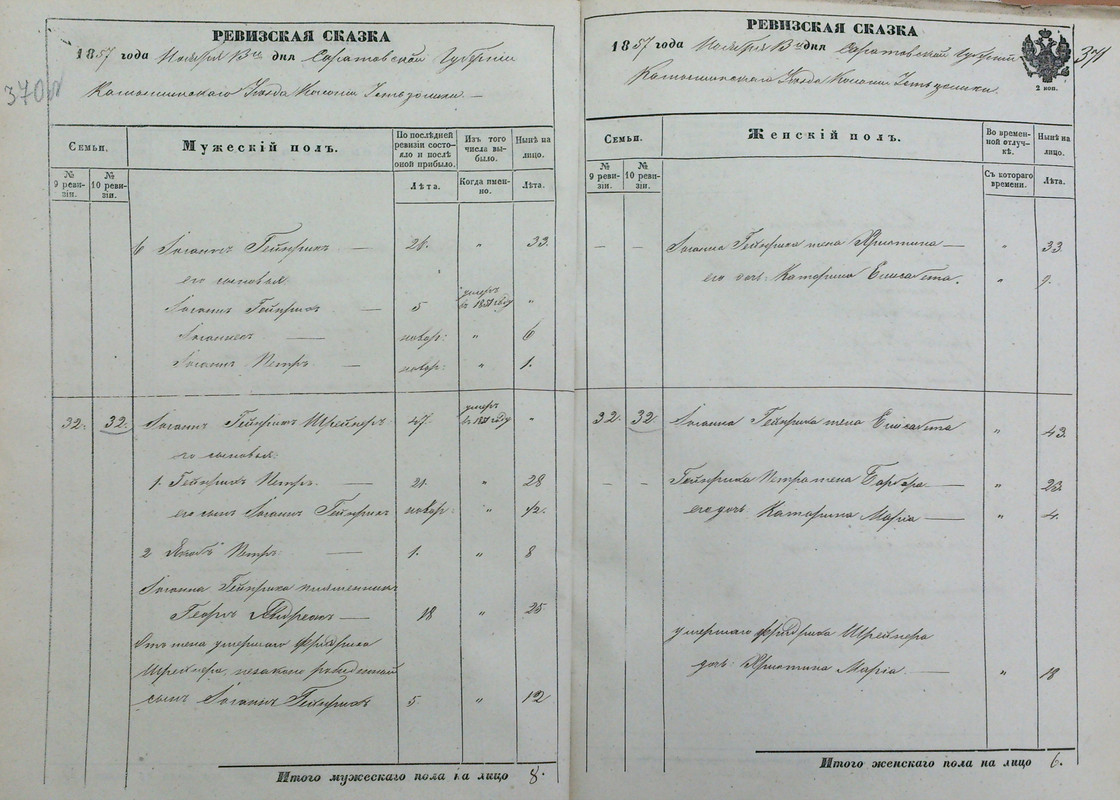 РЕВИЗСКАЯ СКАЗКА
1857 года Ноября 13го дня Саратовской Губернии
Камышинскаго Уѣзда Колонии
370
Семьи.
Мужескій полъ.
По послѣдней ревизіи состояло и послѣ оной прибыло.
Изъ того числа выбыло.
Нынѣ на лицо.
№ 9 ревизіи.
№ 10 ревизіи.
Лѣта.
Когда именно.
Лѣта.
6 Іоганъ Гейнрихъ — 26. " 33.
его сыновья:
Іоганъ Гейнрихъ — 5 умеръ въ 1851 году "
Іоганнесъ — новор: " 6
Іоганъ Петръ — новор: " 1.
32. 32. Іоганъ Гейнрихъ Шрейнеръ 47. умеръ въ 1851 году "
его сыновья:
1. Гейнрихъ Петръ — 21. " 28
его сынъ Іоганъ Гейнрихъ новор: " 1/2.
2 Якобъ Петръ — 1. " 8
Іоганна Гейнриха племянникъ
Георгъ Андреасъ — 18 " 25
умершаго Фридриха
Шрейнера незаконно рожденный
сынъ Іоганъ Гейнрихъ 5 " 12
Итого мужескаго пола на лицо 8.
РЕВИЗСКАЯ СКАЗКА
1857 года Ноября 13го дня Саратовской Губерніи
Камышинскаго Уѣзда Колонии
2 коп.
371
Семьи.
Женскій полъ.
Во временной отлучкѣ.
Нынѣ на лицо.
№ 9 ревизіи.
№ 10 ревизіи.
Съ котораго времени.
Лѣта.
— — Іоганна Гейнриха жена Христина — " 33.
его дочь: Катарина Елисабета. " 9.
32. 32. Іоганна Гейнриха жена Елисабета " 43.
— — Гейнриха Петра жена Барбара — " 23.
его дочь Катарина Марія — " 4.
умершаго Фридриха Шрейнера
дочь: Христина Марія — " 18
Итого женскаго пола на лицо 6.